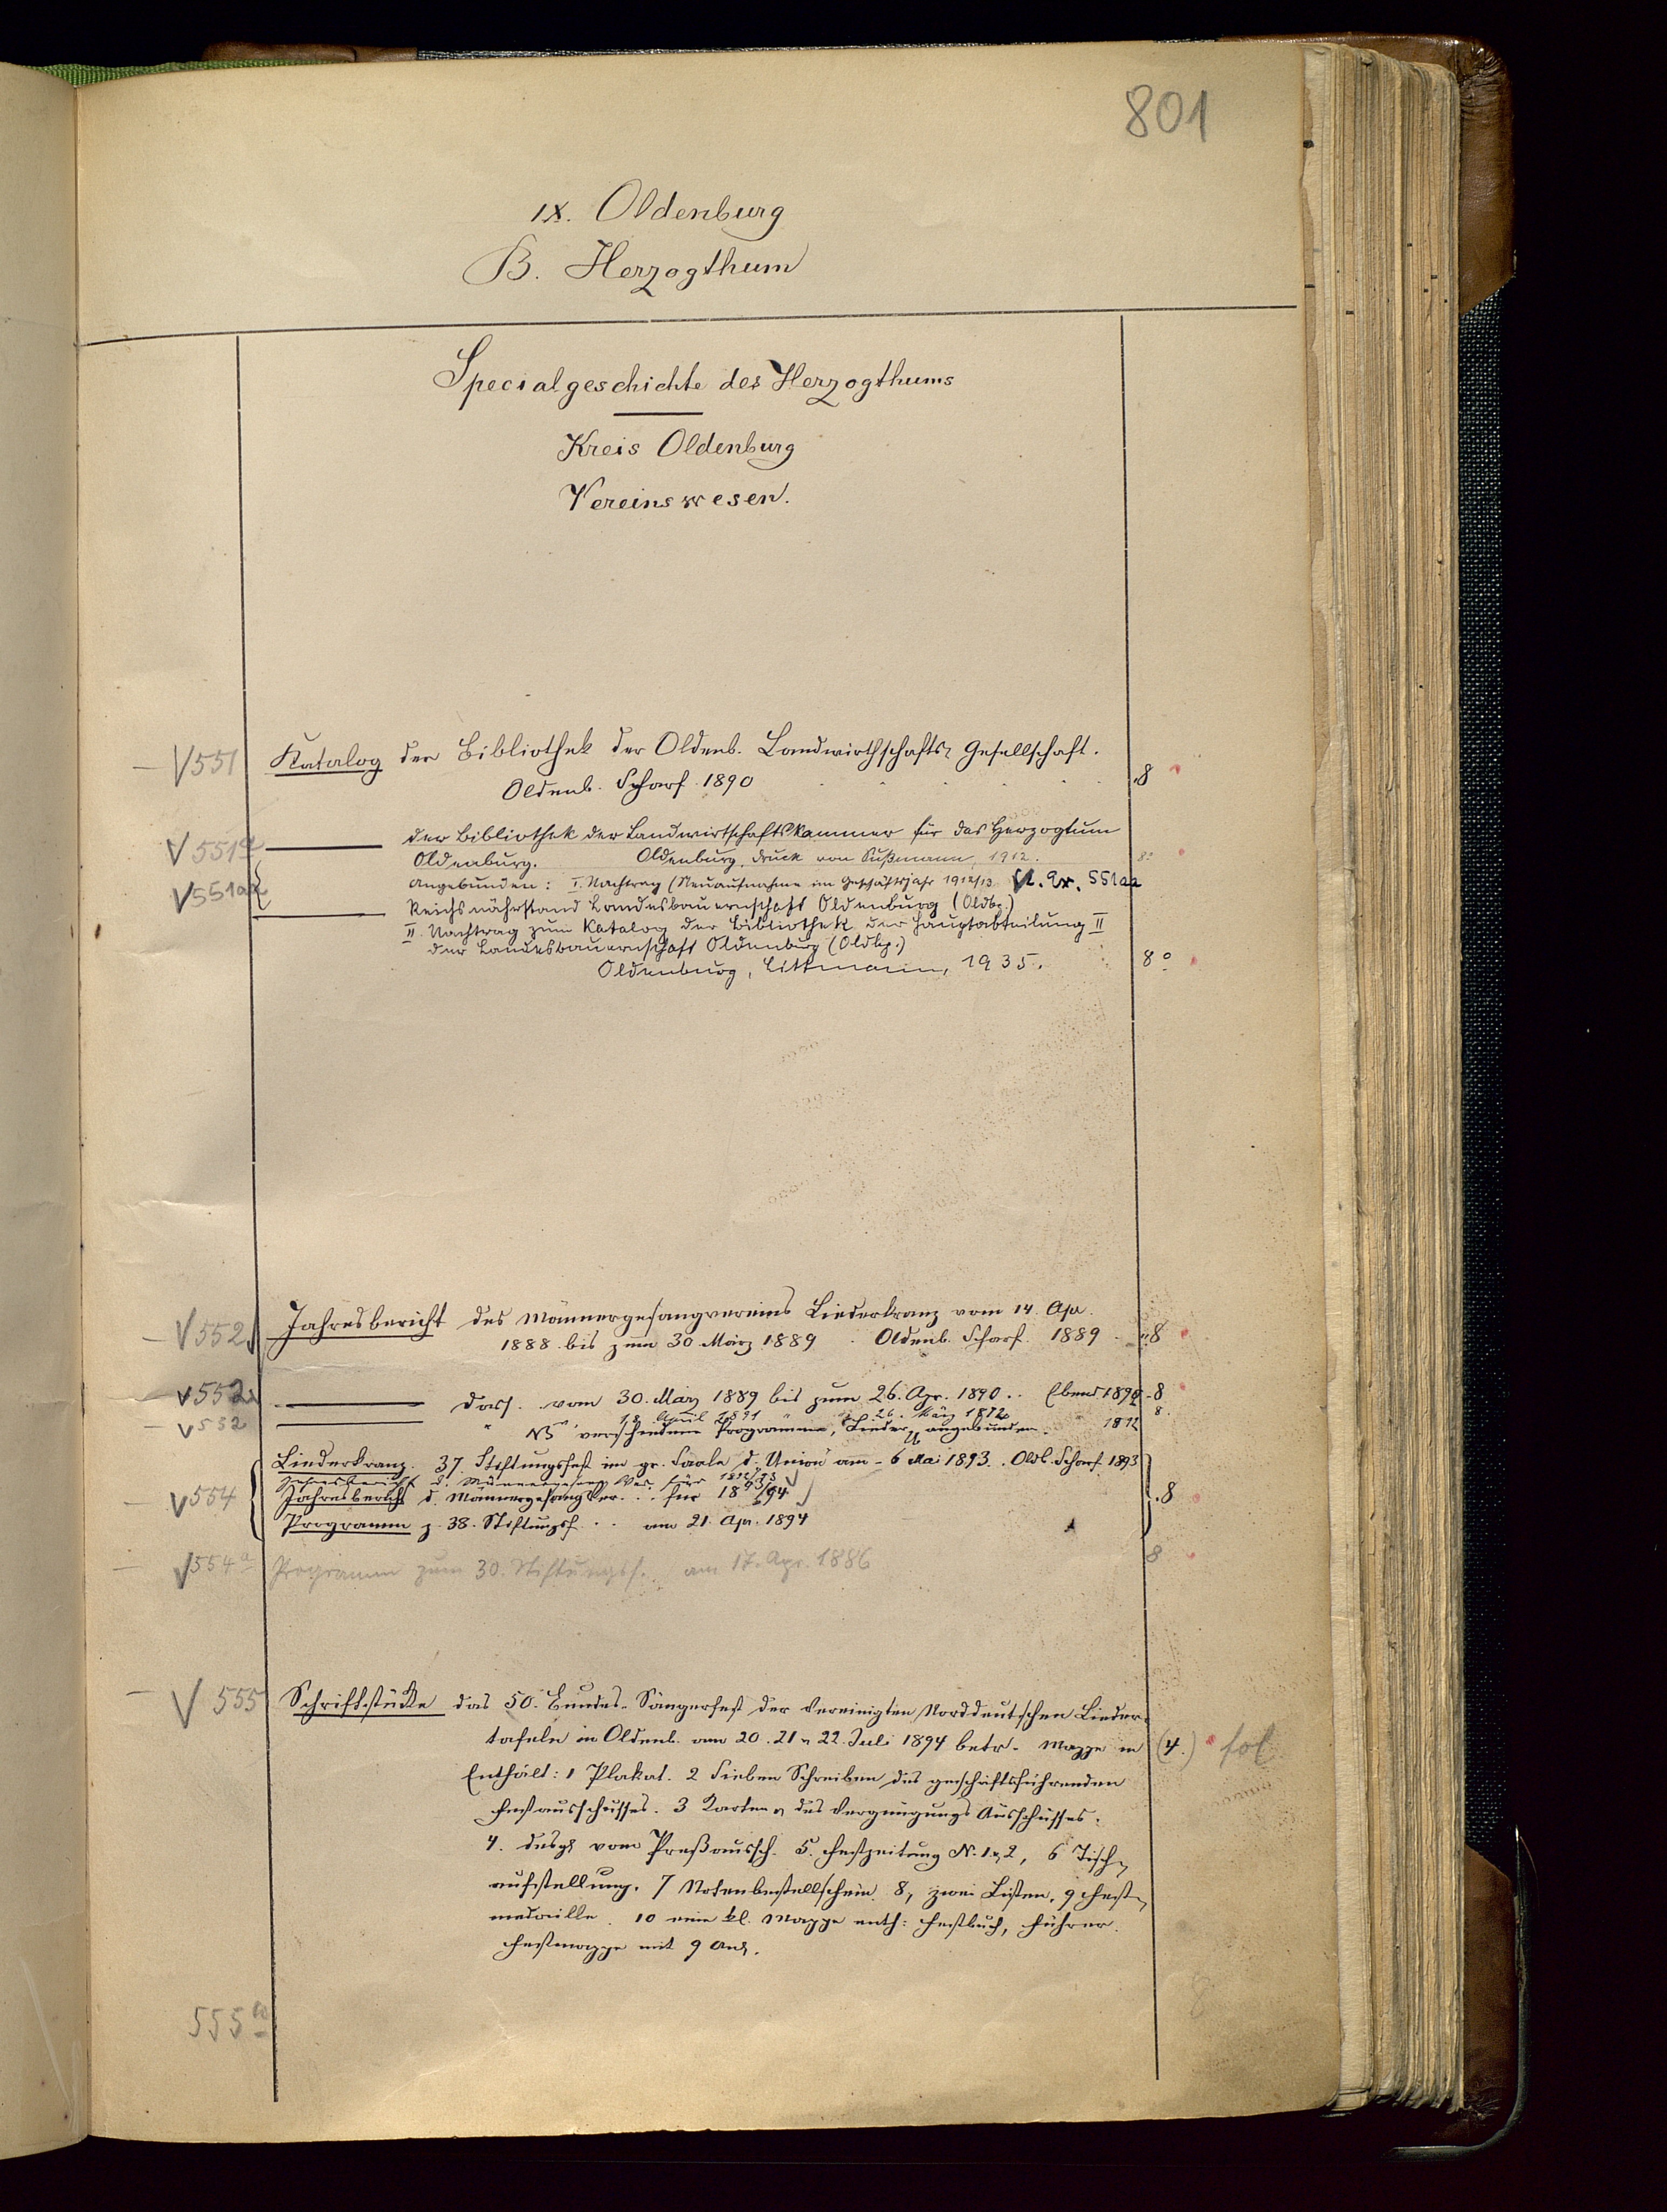 801
IX. Oldenburg
B. Herzogthum
Specialgeschichte des Herzogthums
Kreis Oldenburg
Vereinswesen.
V 551 Katalog der Bibliothek der Oldenb. Landwirthschafts-Gesellschaft.
Oldenb. Scharf 1890 . . . . 8
V 551a der Bibliothek der Landwirtschaftskammer für das Herzogtum
Oldenburg. Oldenburg, Druck von Sußmann, 1912. 8°
V 551aa angebunden: I. Nachtrag (Neuaufnahme im Geschäftsjahr 1912/13 2. Ex. 551aa
Reichsnährstand Landesbauernschaft Oldenburg (Oldbg.)
II. Nachtrag zum Katalog der Bibliothek der Hauptabteilung II
der Landesbauernschaft Oldenburg (Oldbg.)
Oldenburg, Littmann, 1935. 8°
V 552 Jahresbericht des Männergesangvereins Liederkranz vom 14. Apr.
1888 bis zum 30. März 1889 . Oldenb. Scharf. 1889 . 8
V 552a dass. vom 30. März 1889 bis zum 26. Apr. 1890 . . Ebend 1890 . 8
V 552 " " 18. April 1891 " 26. März 1892 1892 8.
NB verschiedene Programme, Lieder angebunden.
Liederkranz. 37. Stiftungsfest im gr. Saale d. Union am 6 Mai 1893. Oldb. Scharf 1893
Jahresbericht d. Männergesang Ver. für 1892/93
V 554 Jahresbericht d. Männergesang Ver. . . für 1893/94 . 8
Programm z. 38. Stiftungsf. . . am 21. Apr. 1894
V 554a Programm zum 30. Stiftungsf. am 17. Apr. 1886 8
V 555 Schriftstücke das 50. Bundes-Sängerfest der Vereinigten Norddeutschen Lieder-
tafeln in Oldenb. am 20. 21 u 22. Juli 1894 betr. Mappe in (4.) fol
Enthält: 1 Plakat. 2 Sieben Schreiben des geschäftsführenden
Festausschusses. 3 Karten des Vergnügungs Ausschusses.
4. desgl vom Preßaussch. 5. Festzeitung N. 1 u 2, 6 Tisch-
aufstellung. 7 Notenbestellschein. 8, zwei Listen. 9 Fest-
medaille. 10 eine kl. Mappe enth: Festbuch, Führer.
Festmappe mit 9 Ans.
555a 8